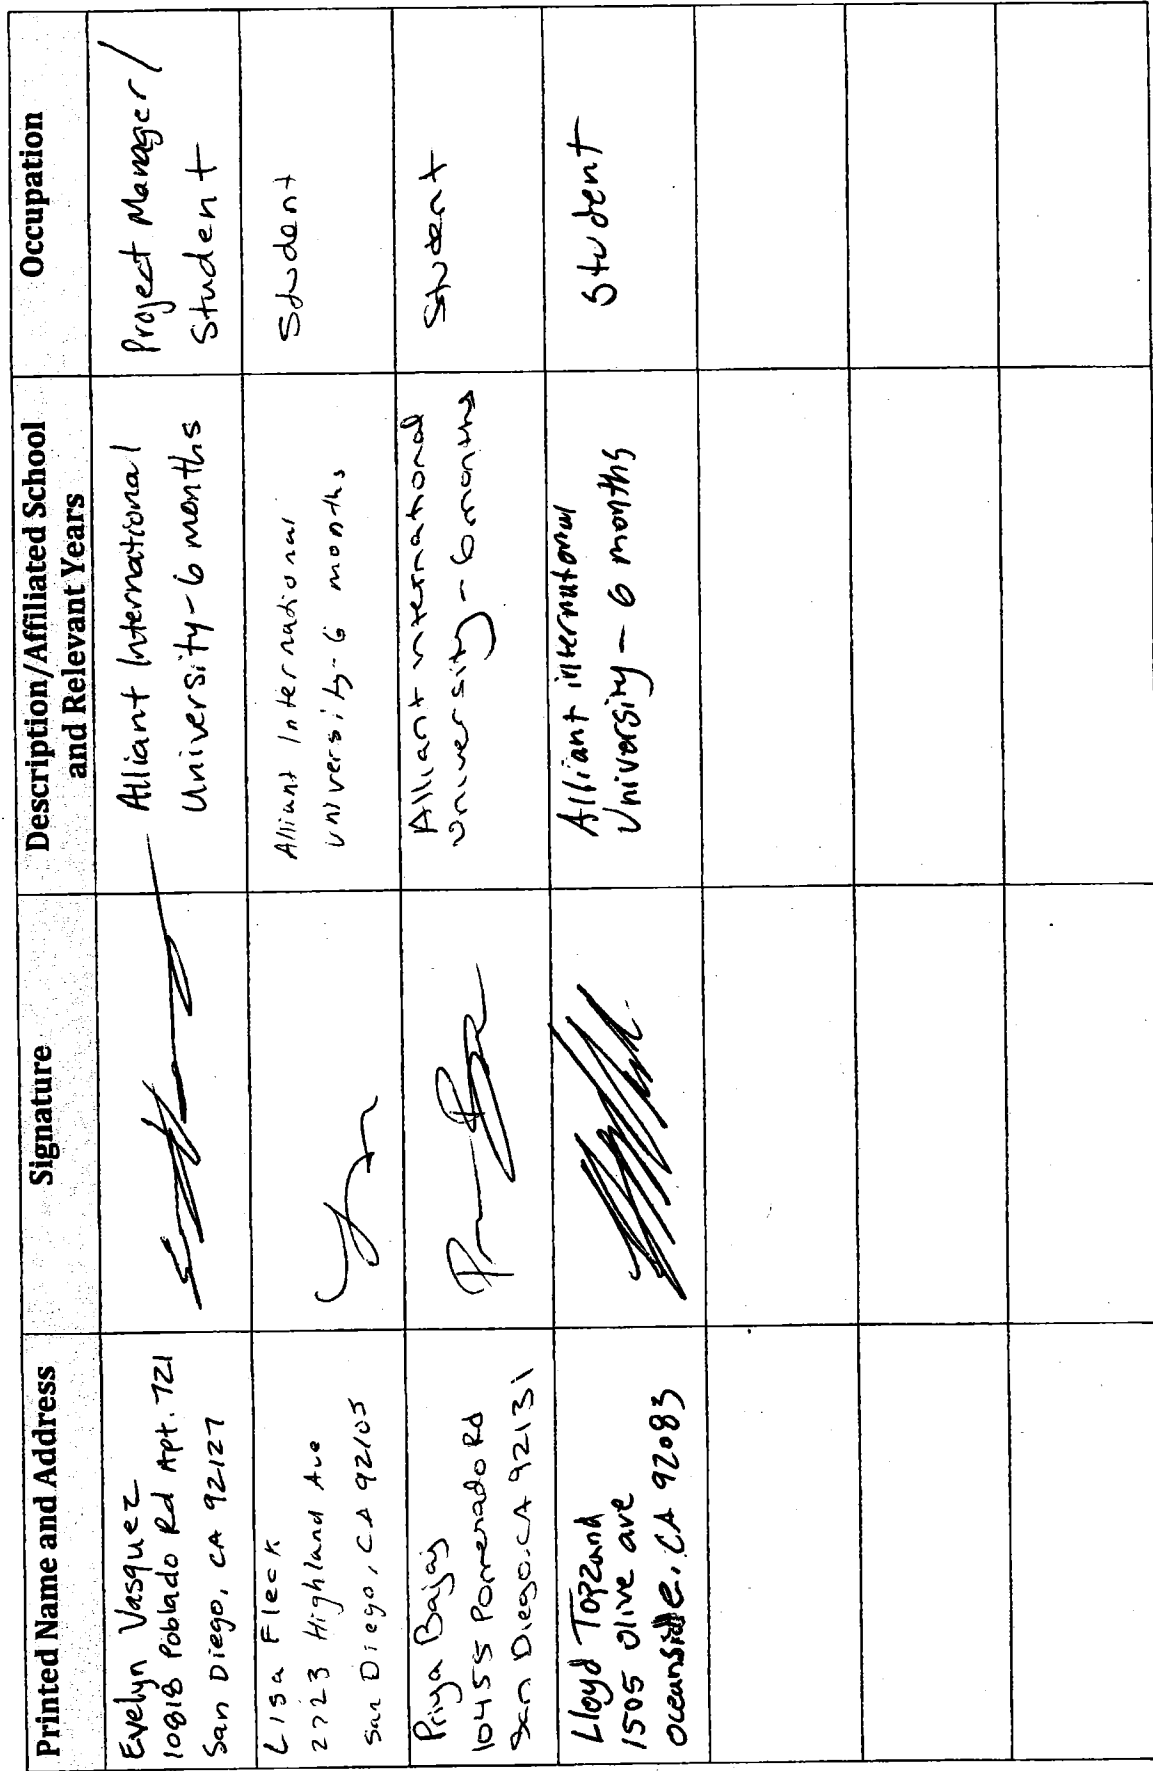 Printed Name and Address
Signature
Description/Affiliated School
and Relevant Years
Occupation
Evelyn Vasquez
10818 Poblado Rd Apt. 721
San Diego, CA 92127
Alliant International
University - 6 months
Project Manager/
Student
Lisa Fleck
2723 Highland Ave
San Diego, CA 92105
Alliant International
University - 6 months
Student
Priya Bajaj
10455 Pomerado Rd
San Diego, CA 92131
Alliant international
University - 6 months
Student
Lloyd Topzand
1505 Olive ave
Oceanside, CA 92083
Alliant international
University - 6 months
Student